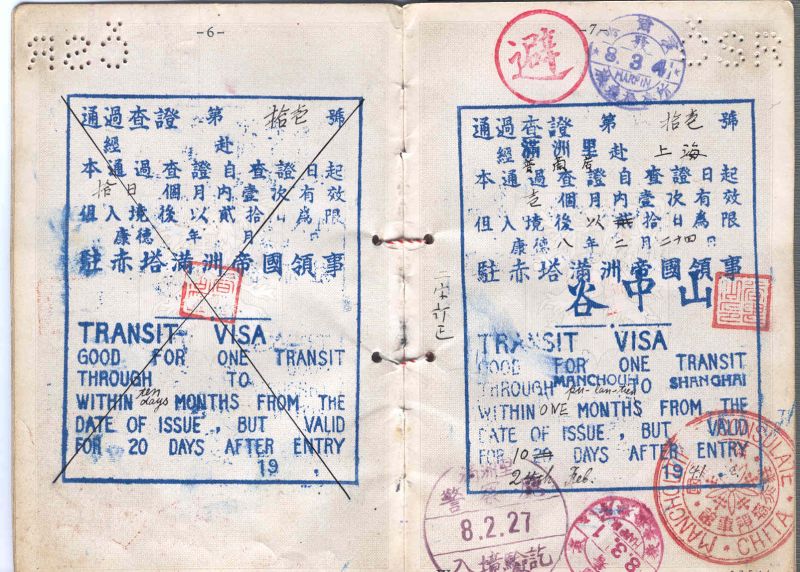 -6-
通過查證 第 拾壱 號
經 赴
本通過查證自查證日起
拾日 個月内壹次有效
但入境後以貳拾日為限
康德 年 月 日
駐赤塔滿洲帝國領事
TRANSIT VISA
GOOD FOR ONE TRANSIT
THROUGH TO
WITHIN ten days MONTHS FROM THE
DATE OF ISSUE, BUT VALID
FOR 20 DAYS AFTER ENTRY
19 .
-7-
避
8.3.4
HARPIN
通過查證 第 拾壱 號
經滿洲里赴 上海
本通過查證自查證日起
壱 個月内壹次有效
但入境後以 拾日為限
康德八年二月二十四日
駐赤塔滿洲帝國領事
山
二字訂正
TRANSIT VISA
GOOD FOR ONE TRANSIT
THROUGH MANCHOULI TO SHANGHAI
WITHIN ONE MONTHS FROM THE
DATE OF ISSUE, BUT VALID
FOR 10 DAYS AFTER ENTRY
24th Feb. 1941.
滿洲里
8.2.27
入境驗訖
8.3.1
CHITA